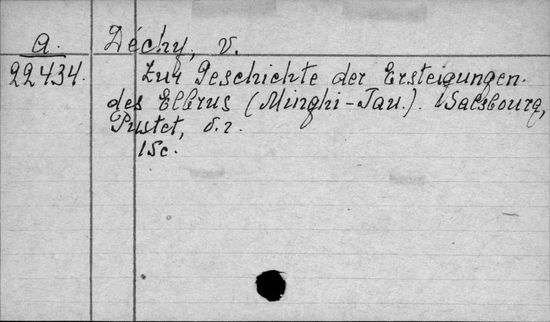 a. Déchy, v.
22434. Zur Geschichte der Ersteigungen
des Elbrus (Minghi-Tau.). Salsbourg,
Pustet, s.r.
Sc.